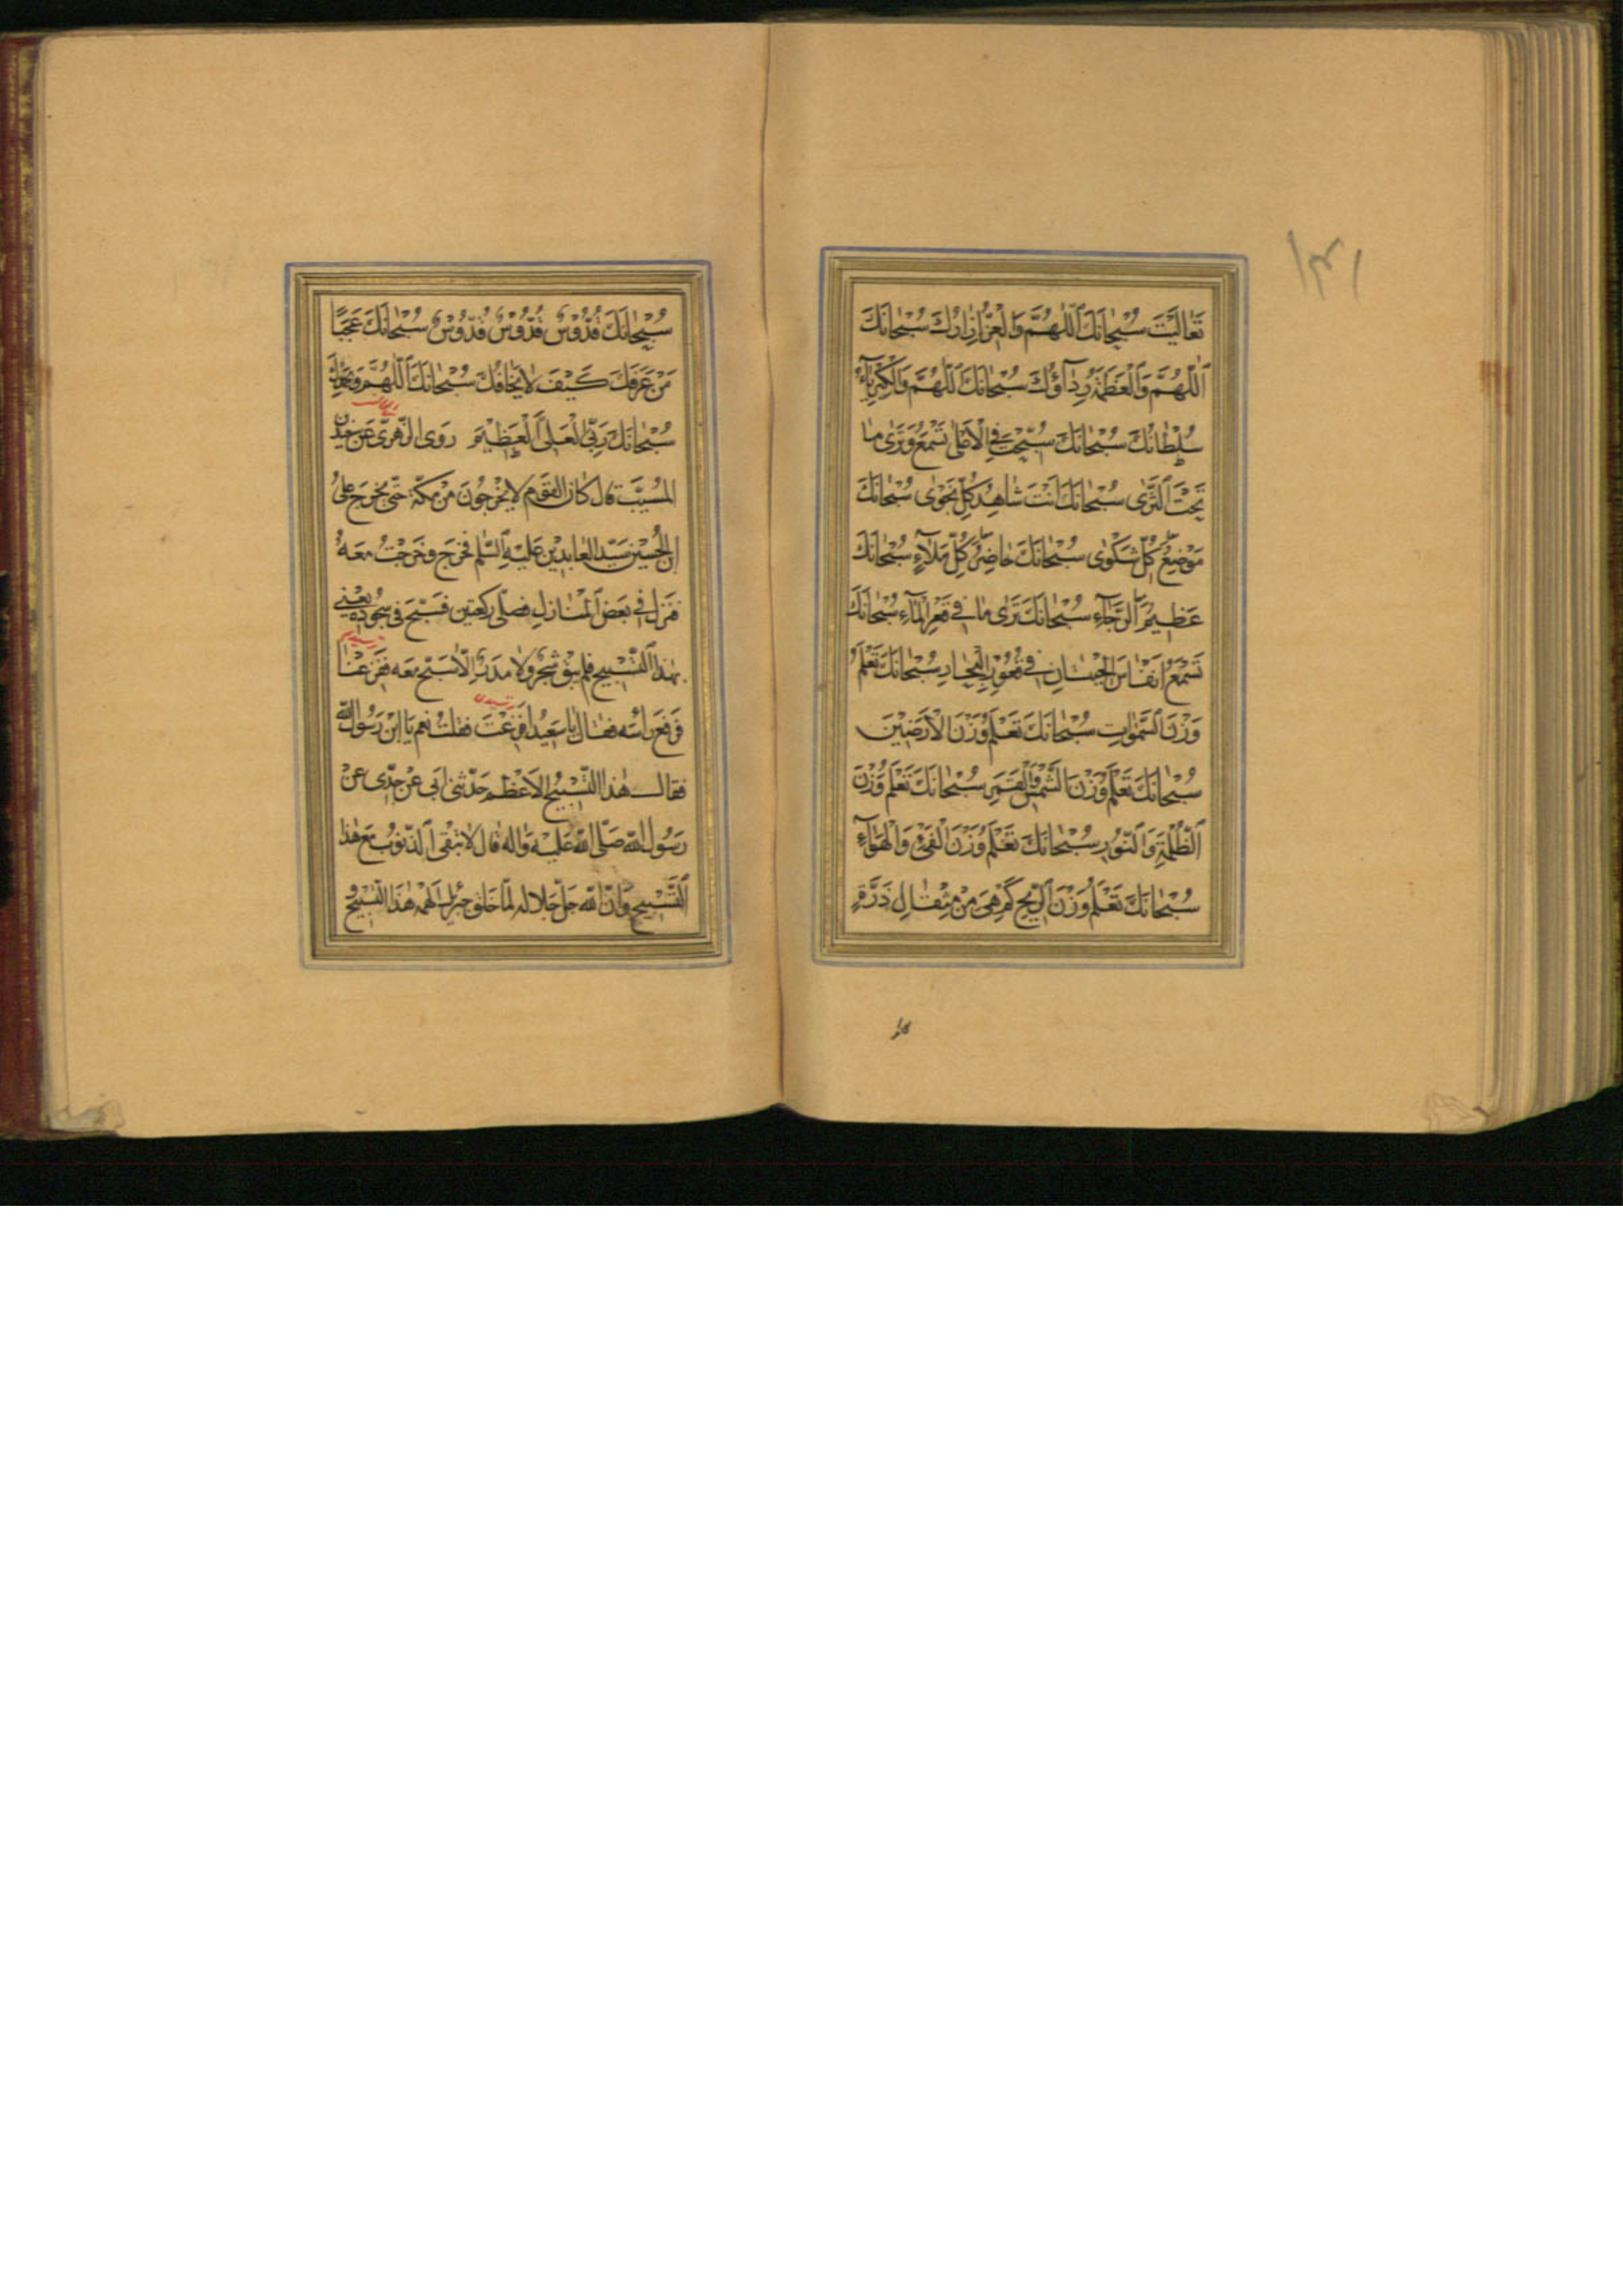 ۱۳۱
تَعَالَيْتَ سُبْحَانَكَ اَللّٰهُمَّ وَالْعِزُّ اِزَارُكَ سُبْحَانَكَ
اَللّٰهُمَّ وَالْعَظَمَةُ رِدَآؤُكَ سُبْحَانَكَ اَللّٰهُمَّ وَالْكِبْرِيَآءُ
سُلْطَانُكَ سُبْحَانَكَ سُبِّحْتَ فِي الْاَعْلٰى تَسْمَعُ وَتَرٰى مَا
تَحْتَ الثَّرٰى سُبْحَانَكَ اَنْتَ شَاهِدُ كُلِّ نَجْوٰى سُبْحَانَكَ
مَوْضِعُ كُلِّ شَكْوٰى سُبْحَانَكَ حَاضِرُ كُلِّ مَلَاٍ سُبْحَانَكَ
عَظِيمُ الرَّجَآءِ سُبْحَانَكَ تَرٰى مَا فِي قَعْرِ الْمَآءِ سُبْحَانَكَ
تَسْمَعُ اَنْفَاسَ الْحِيتَانِ فِي قُعُورِ الْبِحَارِ سُبْحَانَكَ تَعْلَمُ
وَزْنَ السَّمٰوَاتِ سُبْحَانَكَ تَعْلَمُ وَزْنَ الْاَرَضِينَ
سُبْحَانَكَ تَعْلَمُ وَزْنَ الشَّمْسِ وَالْقَمَرِ سُبْحَانَكَ تَعْلَمُ وَزْنَ
الظُّلْمَةِ وَالنُّورِ سُبْحَانَكَ تَعْلَمُ وَزْنَ الْفَيْءِ وَالْهَوَآءِ
سُبْحَانَكَ تَعْلَمُ وَزْنَ الرِّيحِ كَمْ هِيَ مِنْ مِثْقَالِ ذَرَّةٍ
سُبْحَانَكَ قُدُّوسٌ قُدُّوسٌ قُدُّوسٌ سُبْحَانَكَ عَجَبًا
مَنْ عَرَفَكَ كَيْفَ لَا يَخَافُكَ سُبْحَانَكَ اَللّٰهُمَّ وَبِحَمْدِكَ
سُبْحَانَكَ رَبِّيَ الْعَلِيَّ الْعَظِيمَ رَوَى الزُّهْرِيُّ عَنْ سَعِيدِ بْنِ
الْمُسَيَّبِ قَالَ كَانَ الْقَوْمُ لَا يَخْرُجُونَ مِنْ مَكَّةَ حَتّٰى يَخْرُجَ عَلِيُّ
ابْنُ الْحُسَيْنِ سَيِّدُ الْعَابِدِينَ عَلَيْهِ السَّلٰمُ فَخَرَجَ وَخَرَجْتُ مَعَهُ
فَنَزَلَ فِي بَعْضِ الْمَنَازِلِ فَصَلّٰى رَكْعَتَيْنِ فَسَبَّحَ فِي سُجُودِهِ يَعْنِي
بِهٰذَا التَّسْبِيحِ فَلَمْ يَبْقَ شَجَرٌ وَلَا مَدَرٌ اِلَّا سَبَّحَ مَعَهُ فَفَزِعْنَا
فَرَفَعَ رَأْسَهُ فَقَالَ يَا سَعِيدُ اَفَزِعْتَ فَقُلْتُ نَعَمْ يَا ابْنَ رَسُولِ اللهِ
فَقَالَ هٰذَا التَّسْبِيحُ الْاَعْظَمُ حَدَّثَنِي اَبِي عَنْ جَدِّي عَنْ
رَسُولِ اللهِ صَلَّى اللهُ عَلَيْهِ وَالِهِ قَالَ لَا تَبْقَى الذُّنُوبُ مَعَ هٰذَا
التَّسْبِيحِ وَاَنَّ اللهَ جَلَّ جَلَالُهُ لَمَّا خَلَقَ جَبْرَئِيلَ اَلْهَمَهُ هٰذَا التَّسْبِيحَ